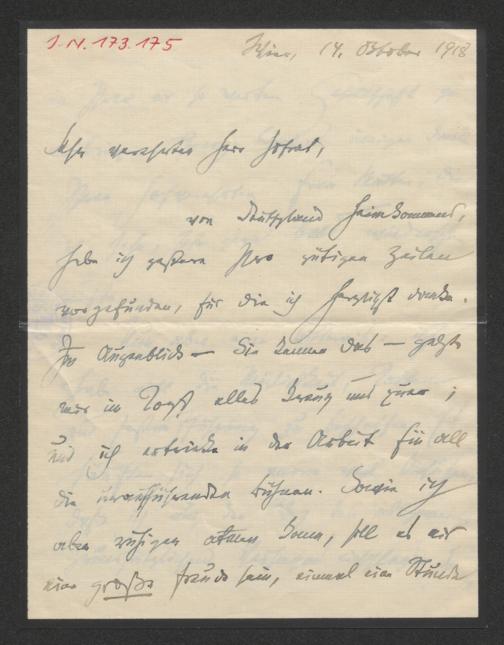 J.N. 173.175
Wien, 14. Oktober 1918
Sehr verehrter Herr Hofrat,
von Deutschland heimkommend,
habe ich gestern Ihre gütigen Zeilen
vorgefunden, für die ich herzlichst danke.
Im Augenblick — Sie kennen das — geht
mir im Kopf alles kreuz und quer;
und ich ertrinke in der Arbeit für all
die uraufführenden Bühnen. Sowie ich
aber ruhiger atmen kann, soll es mir
eine große Freude sein, einmal eine Stunde